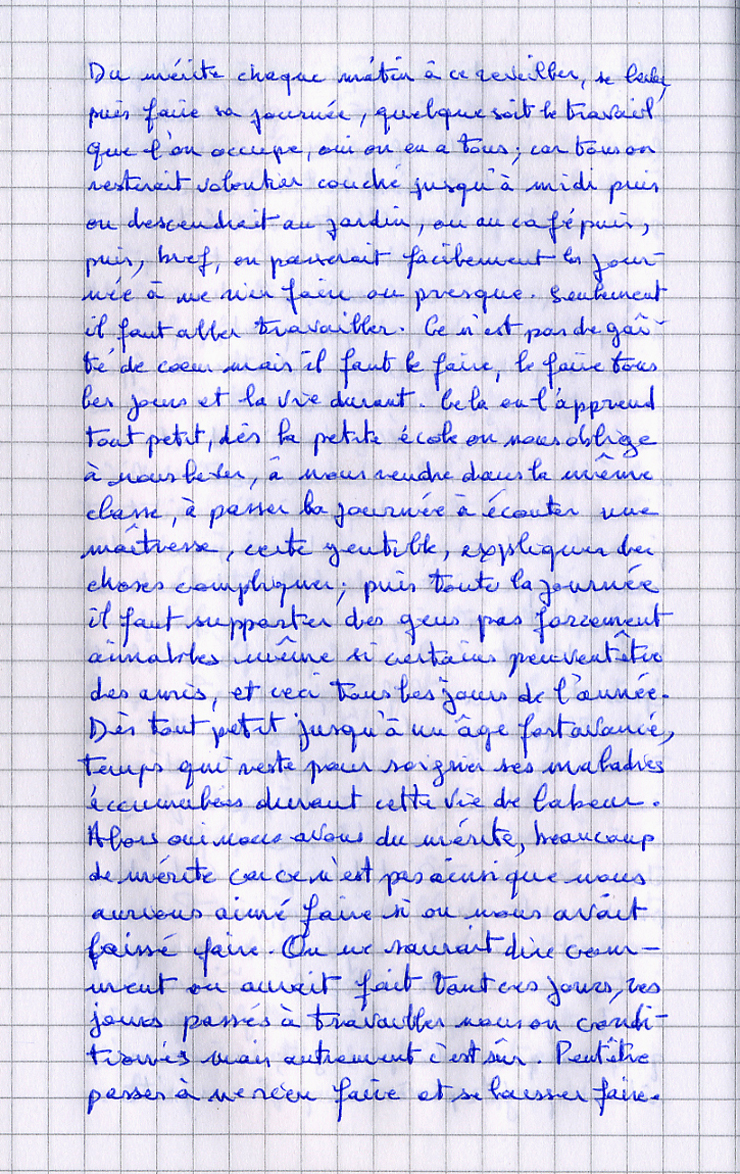 Du mérite chaque mâtin à ce reveiller, se lever,
puis faire sa journée, quelque soit le travail
que l'on occupe, oui on en a tous; car tous on
resterait volontier couché jusqu'à midi puis
on descendrait au jardin, ou au café puis,
puis, bref, on passerait facilement la jour-
née à ne rien faire ou presque. Seulement
il faut aller travailler. Ce n'est pas de gaî-
té de coeur mais il faut le faire, le faire tous
les jours et la vie durant. Cela on l'apprend
tout petit, dès la petite école on nous oblige
à nous lever, à nous rendre dans la même
classe, à passer la journée à écouter une
maîtresse, certe gentille, expliquer des
choses compliquer; puis toute la journée
il faut supporter des gens pas forcement
aimables même si certains peuvent être
des amis, et ceci tous les jours de l'année.
Dès tout petit jusqu'à un âge fort avancé,
temps qui reste pour soigner ses maladies
éccumulées durant cette vie de labeur.
Alors oui nous avons du mérite, beaucoup
de mérite car ce n'est pas ainsi que nous
aurions aimé faire si on nous avait
laissé faire. On ne saurait dire com-
ment on aurait fait tout ces jours, ces
jours passés à travailler nous on condi-
tionnés mais autrement c'est sûr. Peut être
passer à ne rien faire et se laisser faire.